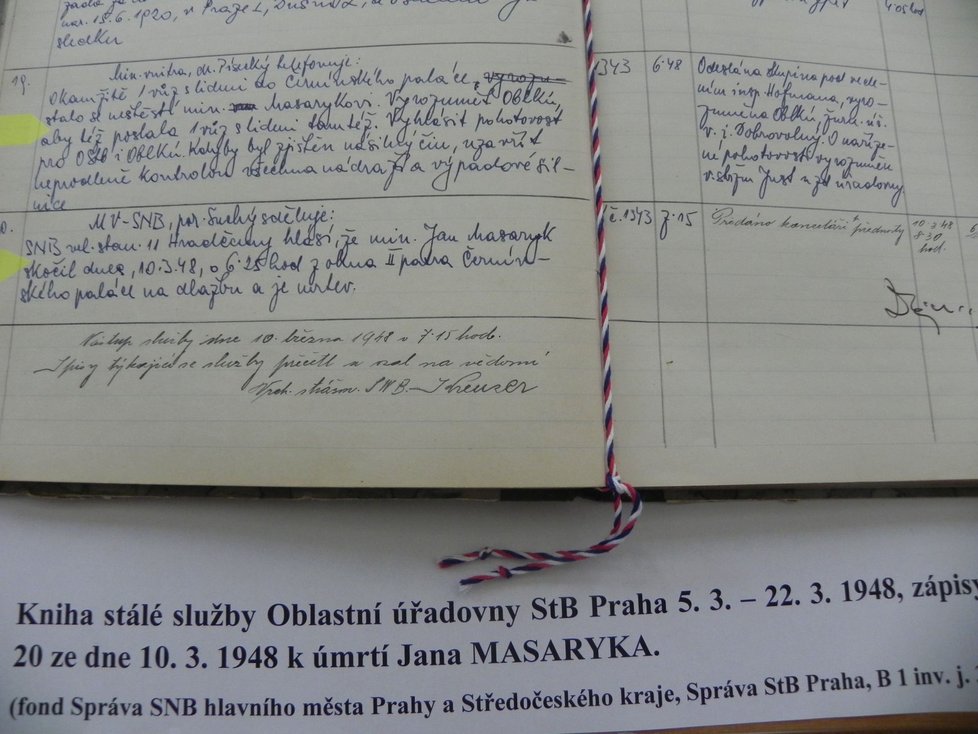 nar. 15.6.1920, v Praze
sledku
19.
Min. vnitra, dr. Písecký telefonuje:
Okamžitě 1 vůz s lidmi do Černínského paláce,
stalo se neštěstí min. Masarykovi. Vyrozumět Oblků,
aby též poslala 1 vůz s lidmi tamtéž. Vyhlásit pohotovost
pro OStB i Oblků. Kdyby byl zjištěn násilný čin, uzavřít
neprodleně kontrolou všechna nádraží a výpadové sil-
nice
343
6·48
Odeslána skupina pod vede-
ním insp. Hofmana, vyro-
zuměna Oblků
v. j. Dobrovolný. O naříze-
né pohotovosti vyrozuměn
MV-SNB, por. Suchý sděluje:
SNB vel. stan. 11 Hradčany hlásí, že min. Jan Masaryk
skočil dnes, 10.3.48, o 6·25 hod z okna II patra Černín-
ského paláce na dlažbu a je mrtev.
č. 1343
7·15
Předáno kanceláři přednosty
10.3.48
8·30
hod.
Nástup služby dne 10. března 1948 v 7·15 hod.
Spisy týkající se služby přečetl a vzal na vědomí
Vrch. strážm. SNB.
Kniha stálé služby Oblastní úřadovny StB Praha 5. 3. – 22. 3. 1948, zápisy
20 ze dne 10. 3. 1948 k úmrtí Jana MASARYKA.
(fond Správa SNB hlavního města Prahy a Středočeského kraje, Správa StB Praha, B 1 inv. j.